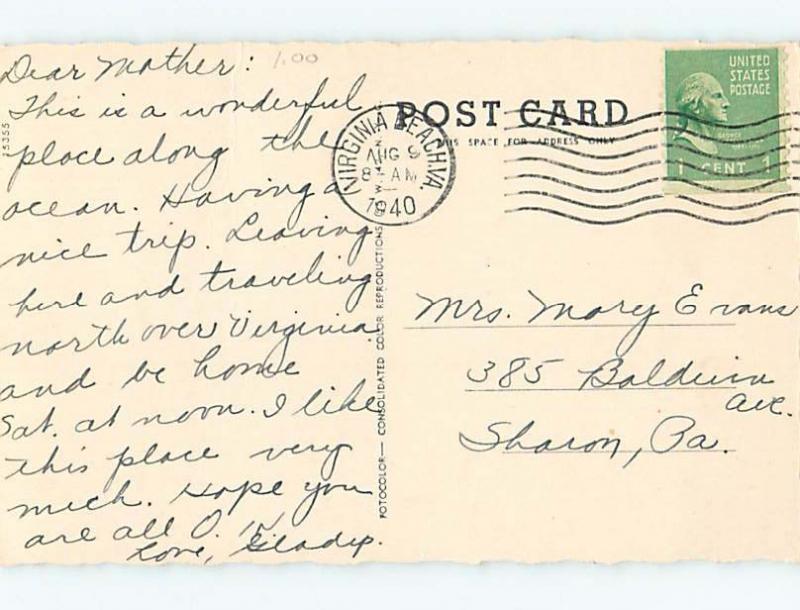 Dear Mother:
1.00
This is a wonderful
place along the
ocean. Having a
nice trip. Leaving
here and traveling
north over Virginia
and be home
Sat. at noon. I like
this place very
much. Hope you
are all O.K.
Love, Gladys.
15355
FOTOCOLOR— CONSOLIDATED COLOR REPRODUCTIONS,
POST CARD
THIS SPACE FOR ADDRESS ONLY
VIRGINIA BEACH, VA.
AUG 9
8 AM
1940
UNITED
STATES
POSTAGE
GEORGE
1 CENT 1
Mrs. Mary Evans
385 Baldwin
Ave.
Sharon, Pa.